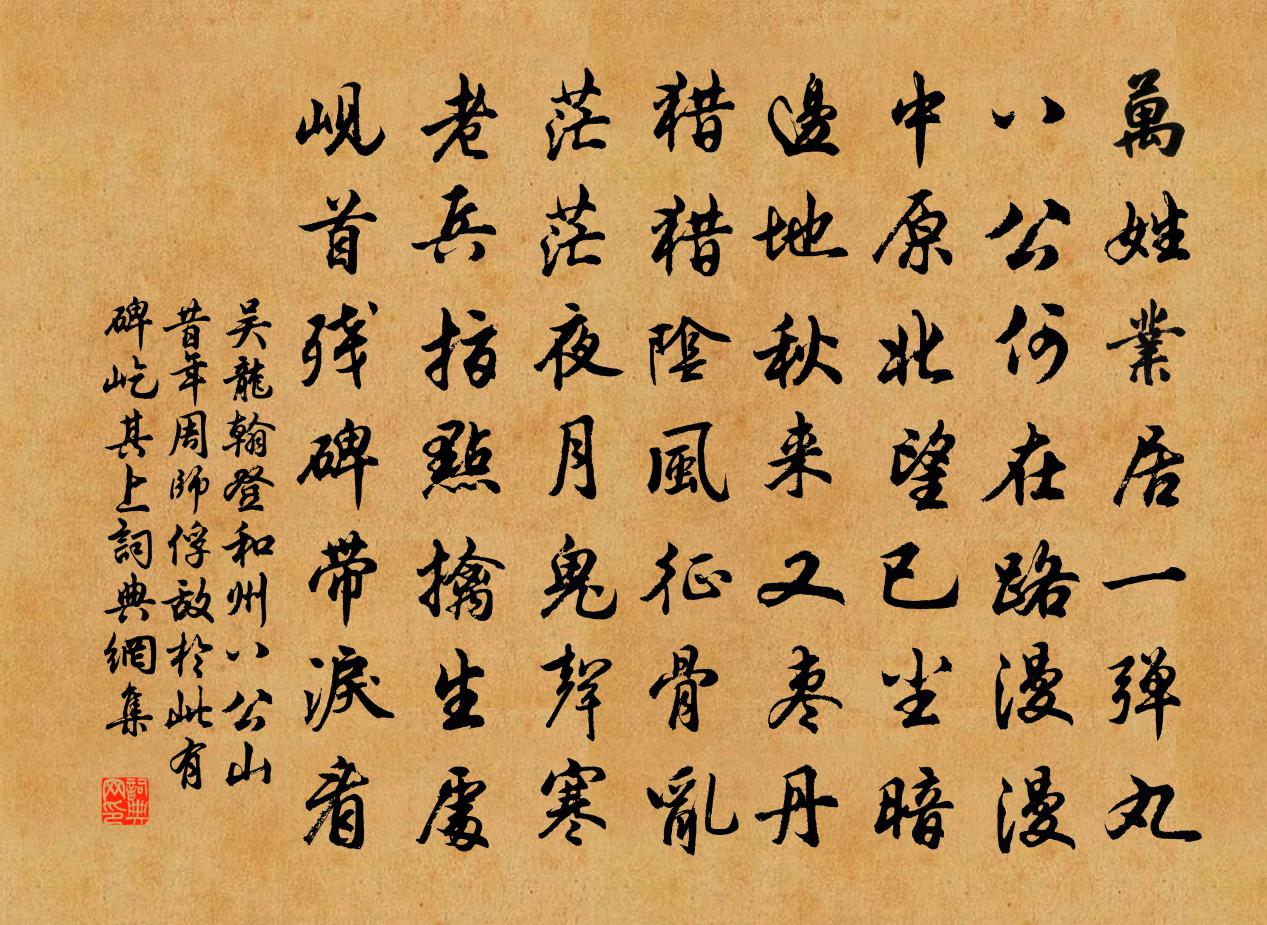 萬姓業居一弹丸
八公何在路漫漫
中原北望已尘暗
邊地秋来又枣丹
猎猎陰風征骨亂
茫茫夜月鬼聲寒
老兵指點擒生處
岘首残碑带淚看
吴龍翰登和州八公山
昔年周师俘敌於此有
碑屹其上詞典網集
詞典
网印